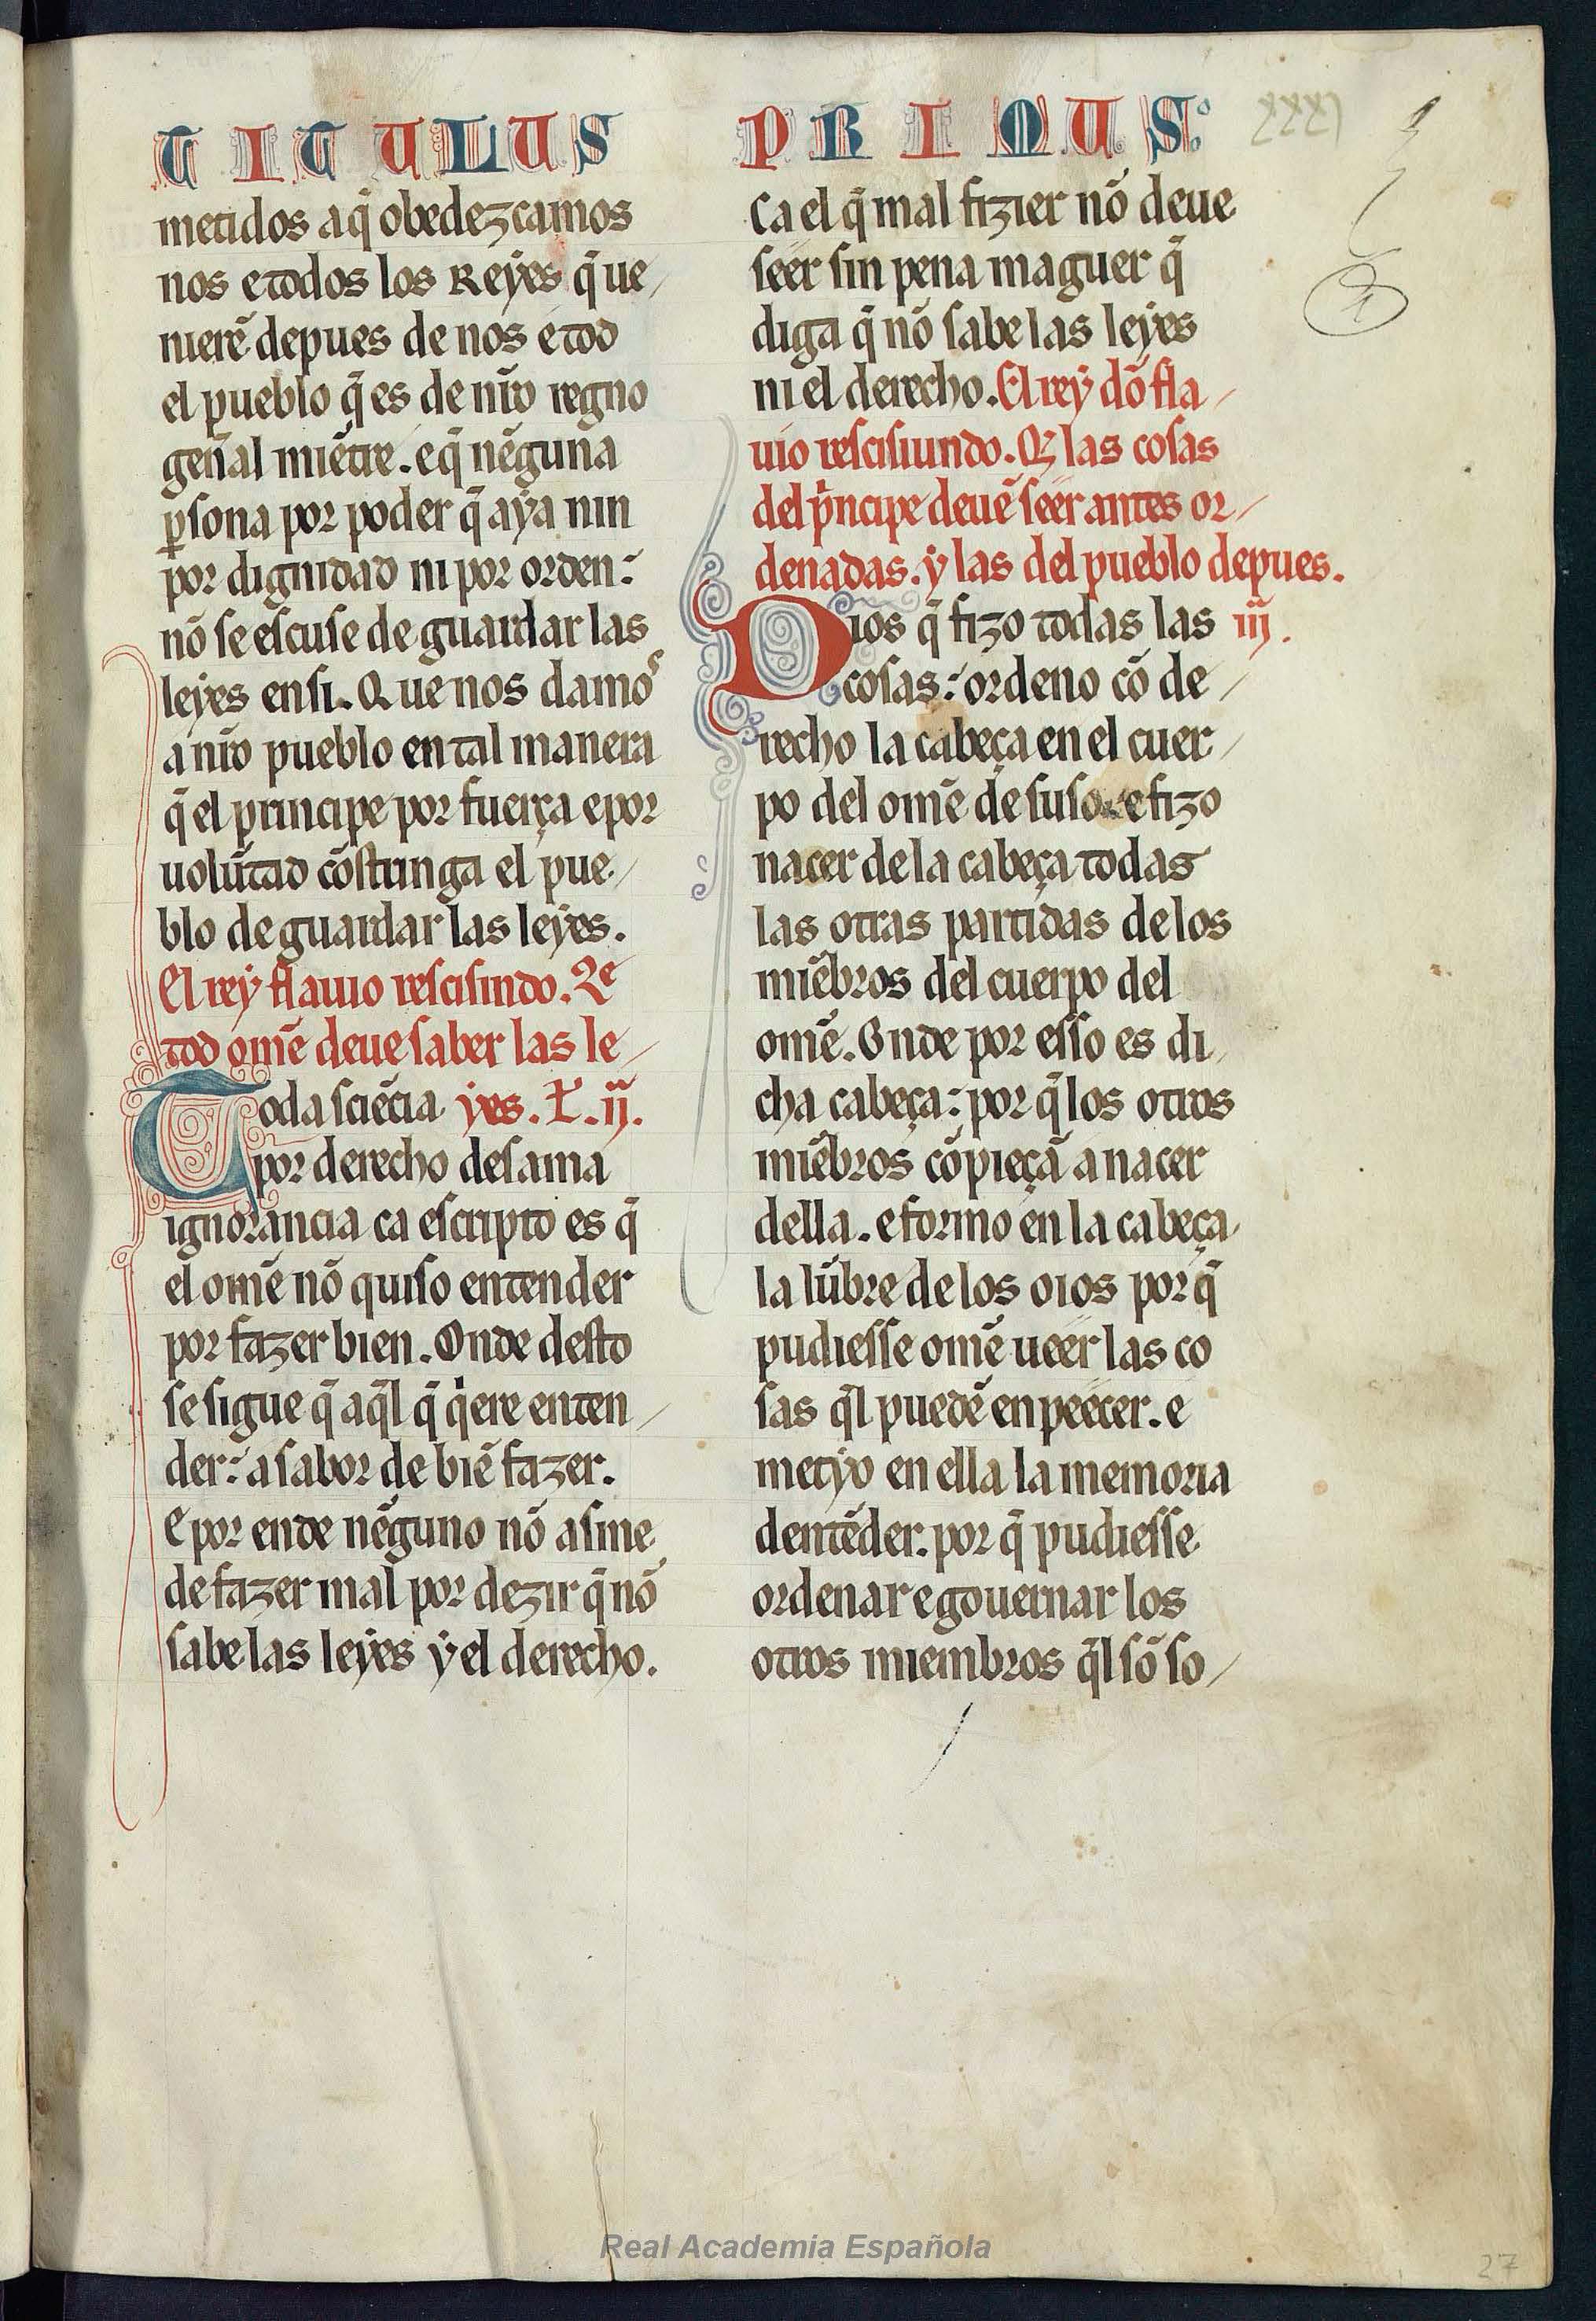 TITULUS PRIMUS
XXXI
metidos aq̃ obedezcamos
nos e todos los Reyes q̃ ue/
nierẽ depues de nos e tod
el pueblo q̃ es de nr̃o regno
gen̄al miẽtre. e q̃ nẽguna
ꝑsona por poder q̃ aya nin
por dignidad ni por orden:
nõ se escuse de guardar las
leyes en si. Que nos damos
a nr̃o pueblo en tal manera
q̃ el principe por fuerça e por
uolũtad cõstringa el pue/
blo de guardar las leyes.
El rey flauio rescisindo. Q̃
tod omẽ deue saber las le/
Toda sciẽcia yes. t. ij.
por derecho desama
ignorancia ca escripto es q̃
el omẽ nõ quiso entender
por fazer bien. Onde desto
se sigue q̃ aq̃l q̃ q̃ere enten/
der: a sabor de biẽ fazer.
E por ende nẽguno nõ asme
de fazer mal por dezir q̃ nõ
sabe las leyes y el derecho.
Ca el q̃ mal fizier nõ deue
seer sin pena maguer q̃
diga q̃ nõ sabe las leyes
ni el derecho. El rey dõ fla/
uio rescisiundo. Q̃ las cosas
del p̃ncipe deuẽ seer antes or/
denadas. y las del pueblo depues.
Dios q̃ fizo todas las iij.
cosas: ordeno cõ de/
recho la cabeça en el cuer/
po del omẽ de suso. e fizo
nacer de la cabeça todas
las otras partidas de los
miẽbros del cuerpo del
omẽ. Onde por esso es di
cha cabeça: por q̃ los otros
miẽbros cõpieçã a nacer
della. e formo en la cabeça
la lũbre de los oios por q̃
pudiesse omẽ ueer las co
sas q̃l puedẽ enpeecer. e
metyo en ella la memoria
dentẽder. por q̃ pudiesse
ordenar e gouernar los
otros miembros q̃l sõ so/
Real Academia Española
27